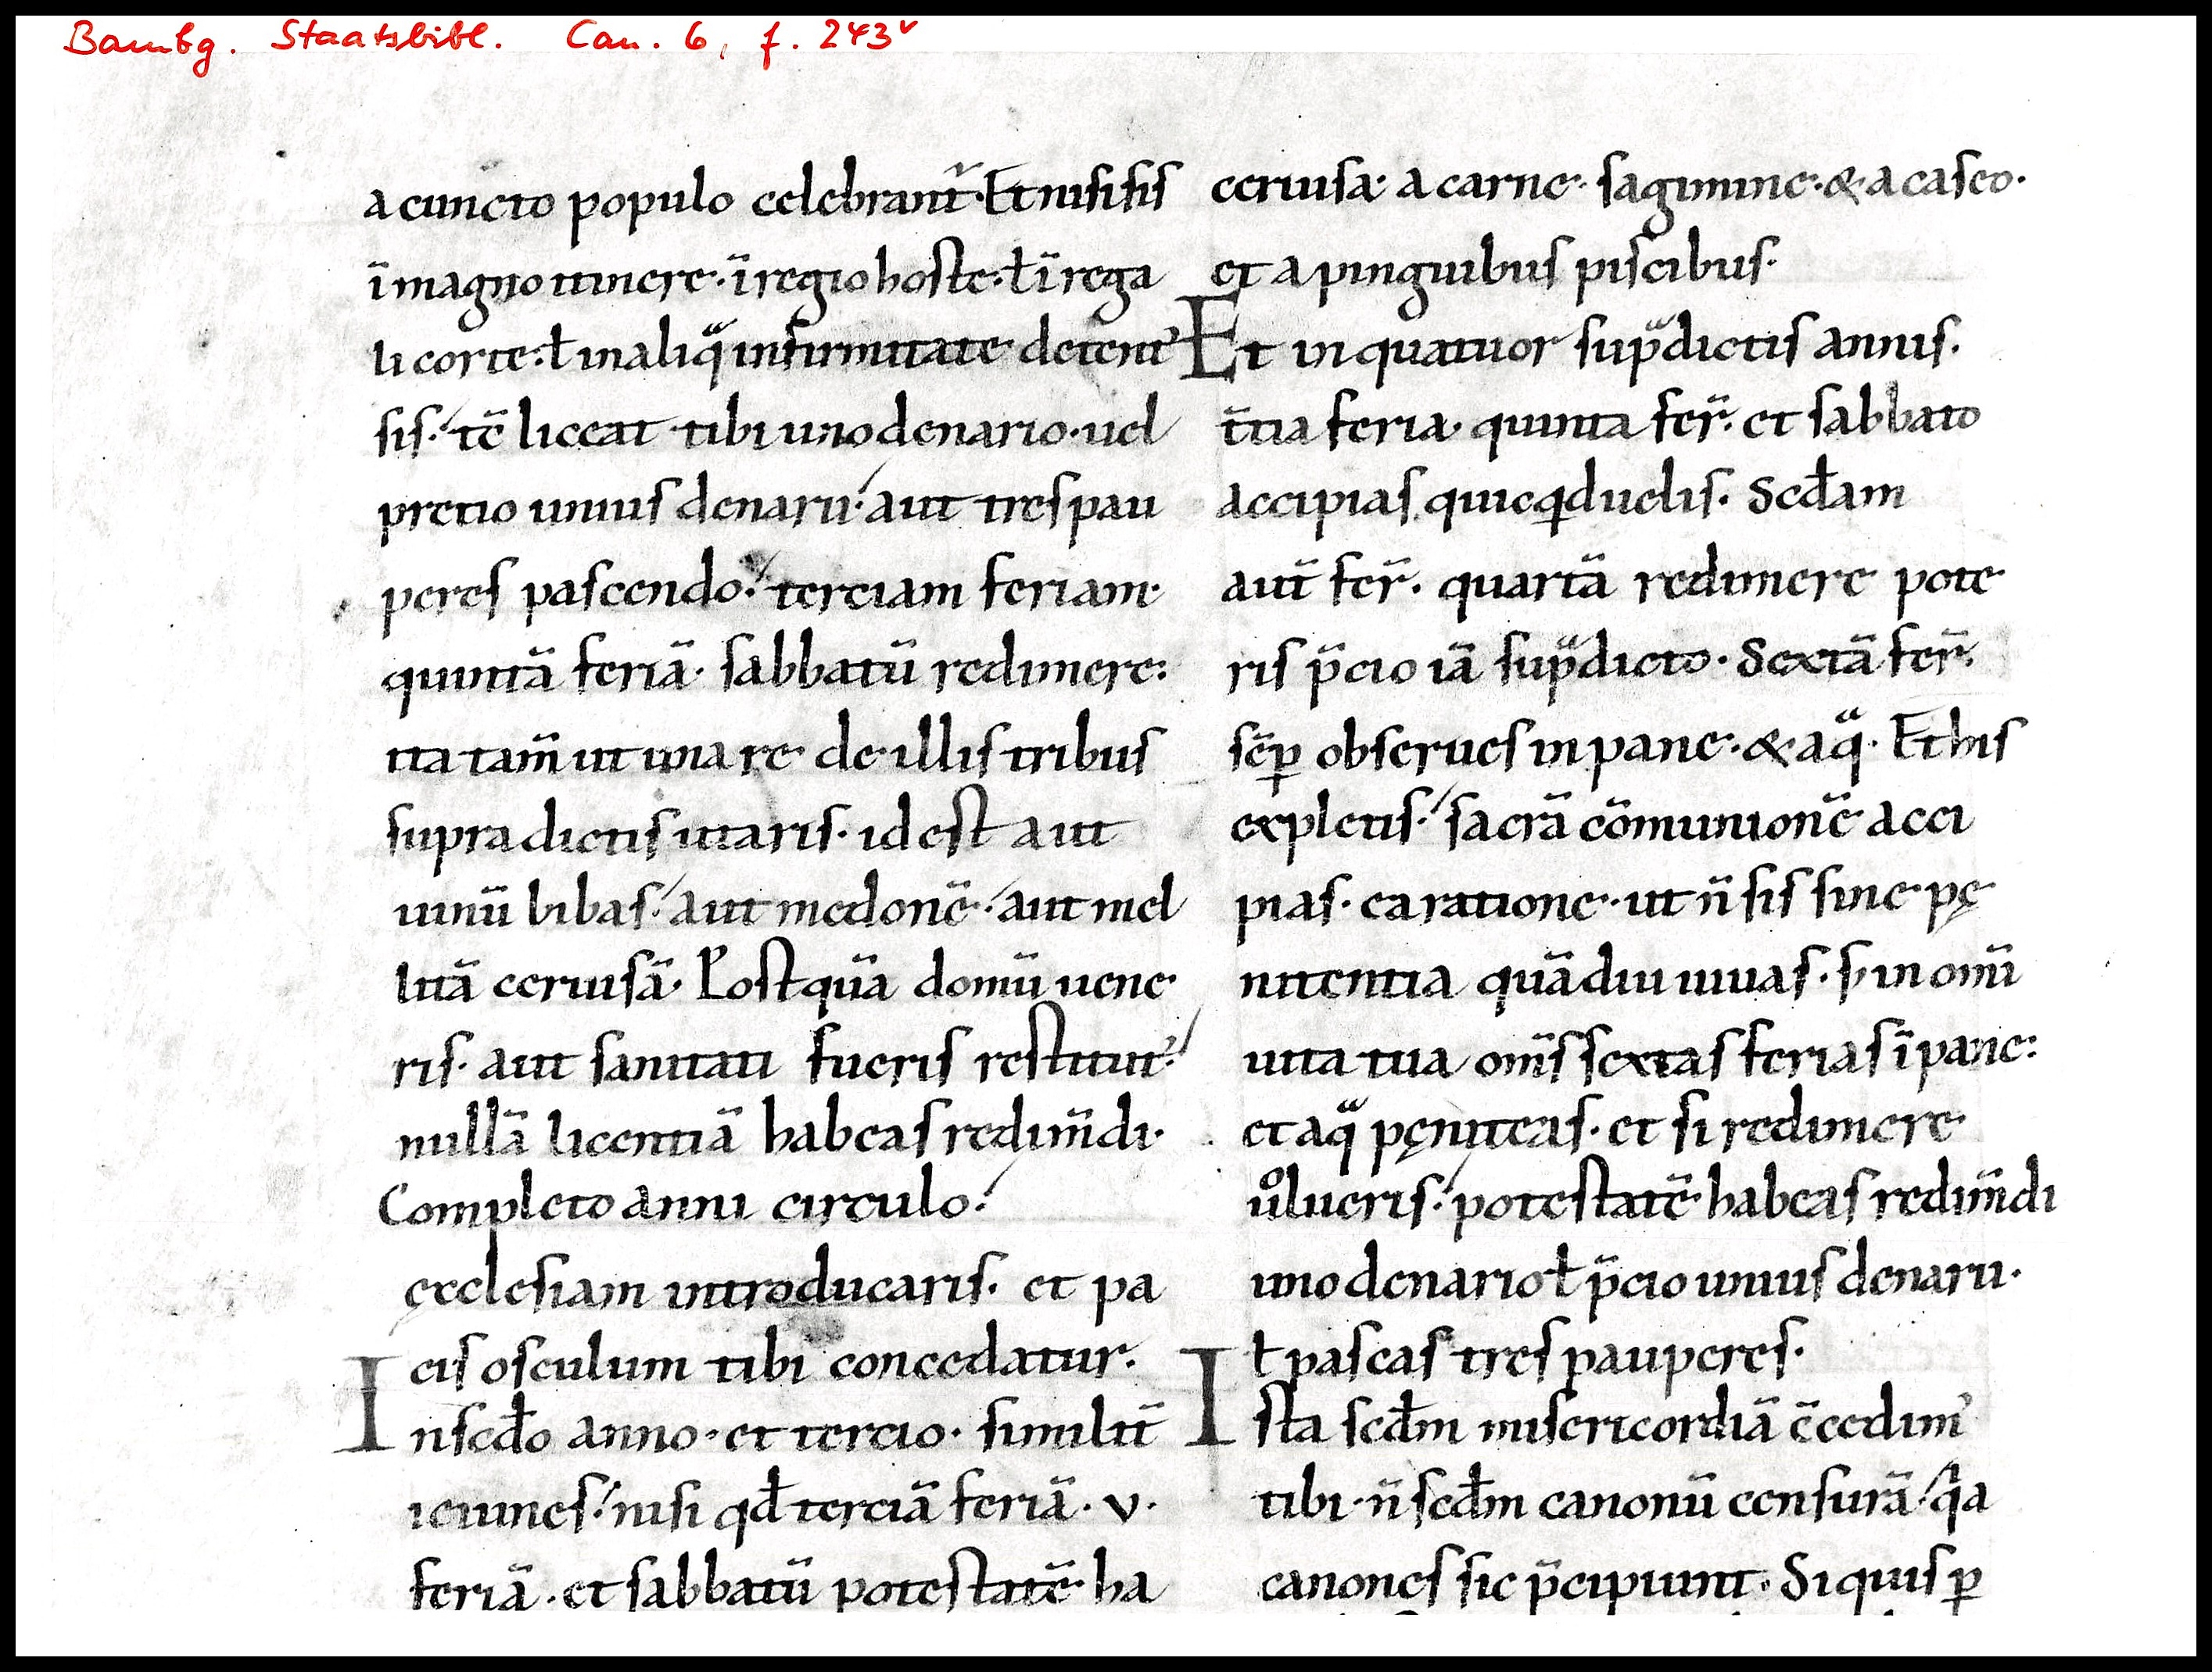 Bambg. Staatsbibl. Can. 6, f. 243v
a cuncto populo celebrant̄. Et nisi sis
ī magno itinere. ī regio hoste. ł ī rega
li corte. ł in aliqͣ infirmitate detent᾿
sis. tc̄ liceat tibi uno denario. uel
pretio unius denarii. aut tres pau
peres pascendo. terciam feriam.
quintā feriā. sabbatū redimere:
ita tam̄ ut una re de illis tribus
supra dictis utaris. id est aut
uinū bibas. aut medonē. aut mel
litā ceruisā. Postquā domū uene
ris. aut sanitati fueris restitut᾿.
nullā licentiā habeas redim̄di.
Completo anni circulo.
ęcclesiam introducaris. et pa
cis osculum tibi concedatur.
In scd̄o anno. et tercio. similit̄
ieiunes. nisi qđ terciā feriā. v.
feriā. et sabbatū potestatē ha
ceruisa. a carne. sagimine. & a caseo.
et a pinguibus piscibus.
Et in quatuor supͣdictis annis.
t̄tia feria. quinta fer̄. et sabbato
accipias quicqͥd uelis. Scd̄am
aut̄ fer̄. quartā redimere pote
ris p̄cio iā supͣdicto. Sextā fer̄.
sēp obserues in pane. & aqͣ. Et his
expletis. sacrā cōmunionē acci
pias. ea ratione. ut n̄ sis sine pę
nitentia quādiu uiuas. s; in om̄i
uita tua om̄s sextas ferias ī pane:
et aqͣ pęniteas. et si redimere
uͦlueris. potestatē habeas redim̄di
uno denario ł p̄cio unius denarii.
ł pascas tres pauperes.
Ista scd̄m misericordiā c̄cedim᾿
tibi. n̄ scd̄m canonū censurā. qͥa
canones sic p̄cipiunt. Si quis ꝑ